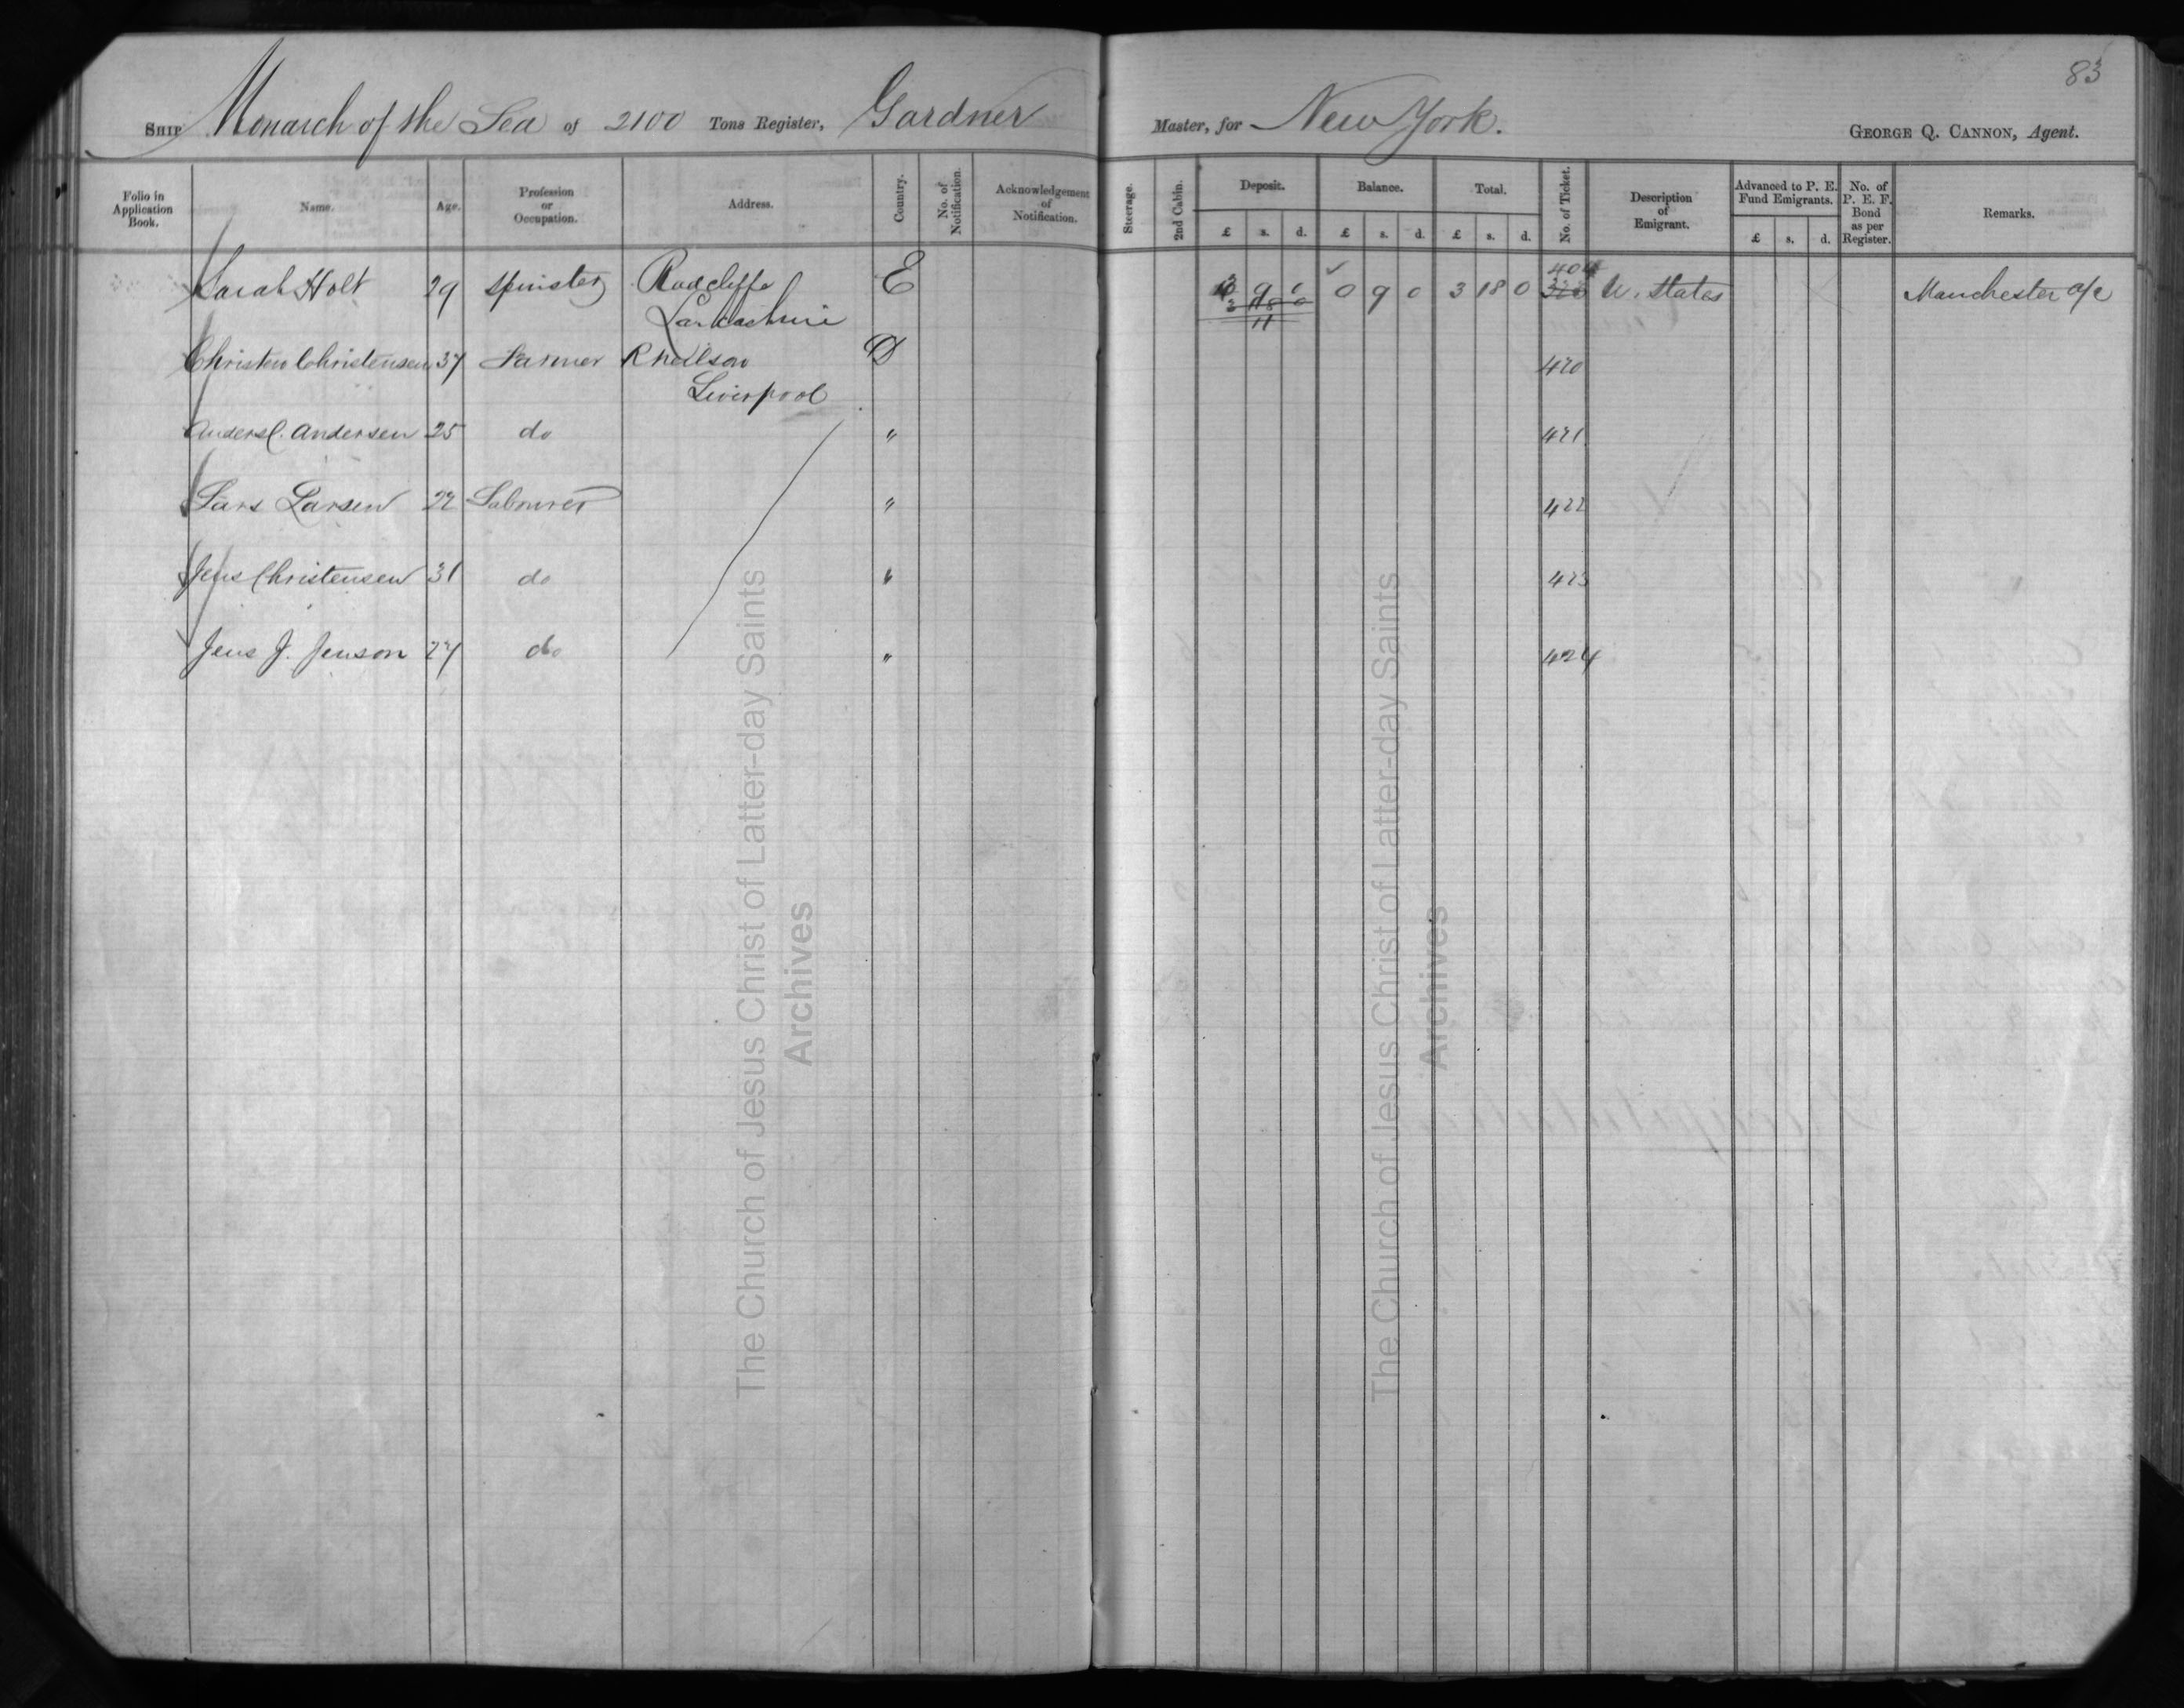 83
SHIP Monarch of the Sea of 2100 Tons Register, Gardner Master, for New York. GEORGE Q. CANNON, Agent.
Folio in Application Book. Name. Age. Profession or Occupation. Address. Country. No. of Notification. Acknowledgement of Notification. Steerage. 2nd Cabin. Deposit. £ s. d. Balance. £ s. d. Total. £ s. d. No. of Ticket. Description of Emigrant. Advanced to P. E. Fund Emigrants. £ s. d. No. of P. E. F. Bond as per Register. Remarks.
404
Sarah Holt 29 Spinster Radcliffe E 9 0 0 9 0 3 18 0 U. States Manchester a/c
Lancashire
Christen Christensen 37 Farmer R Neilson D 420
Liverpool
Anders C. Andersen 25 do " 421
Lars Larsen 22 Labourer " 422
Jens Christensen 31 do " 423
Jens J. Jenson 27 do " 424
The Church of Jesus Christ of Latter-day Saints
Archives
The Church of Jesus Christ of Latter-day Saints
Archives